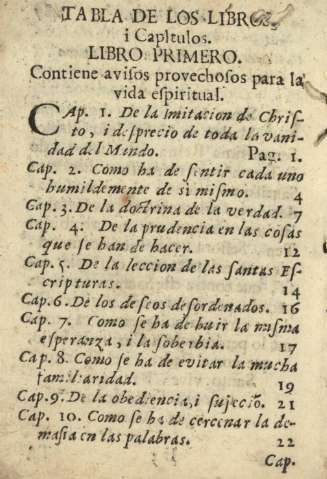 TABLA DE LOS LIBROS
i Capitulos.
LIBRO PRIMERO.
Contiene avisos provechosos para la
vida espiritual.
CAp. 1. De la imitacion de Chris-
to, i desprecio de toda la vani-
dad del Mundo. Pag. 1.
Cap. 2. Como ha de sentir cada uno
humildemente de si mismo. 4
Cap. 3. De la doctrina de la verdad. 7
Cap. 4. De la prudencia en las cosas
que se han de hacer. 12
Cap. 5. De la leccion de las santas Es
cripturas. 14
Cap. 6. De los deseos desordenados. 16
Cap. 7. Como se ha de huir la misma
esperanza, i la soberbia. 17
Cap. 8. Como se ha de evitar la mucha
familiaridad. 19
Cap. 9. De la obediencia, i sujeciō. 21
Cap. 10. Como se ha de cercenar la de-
masia en las palabras. 22
Cap.